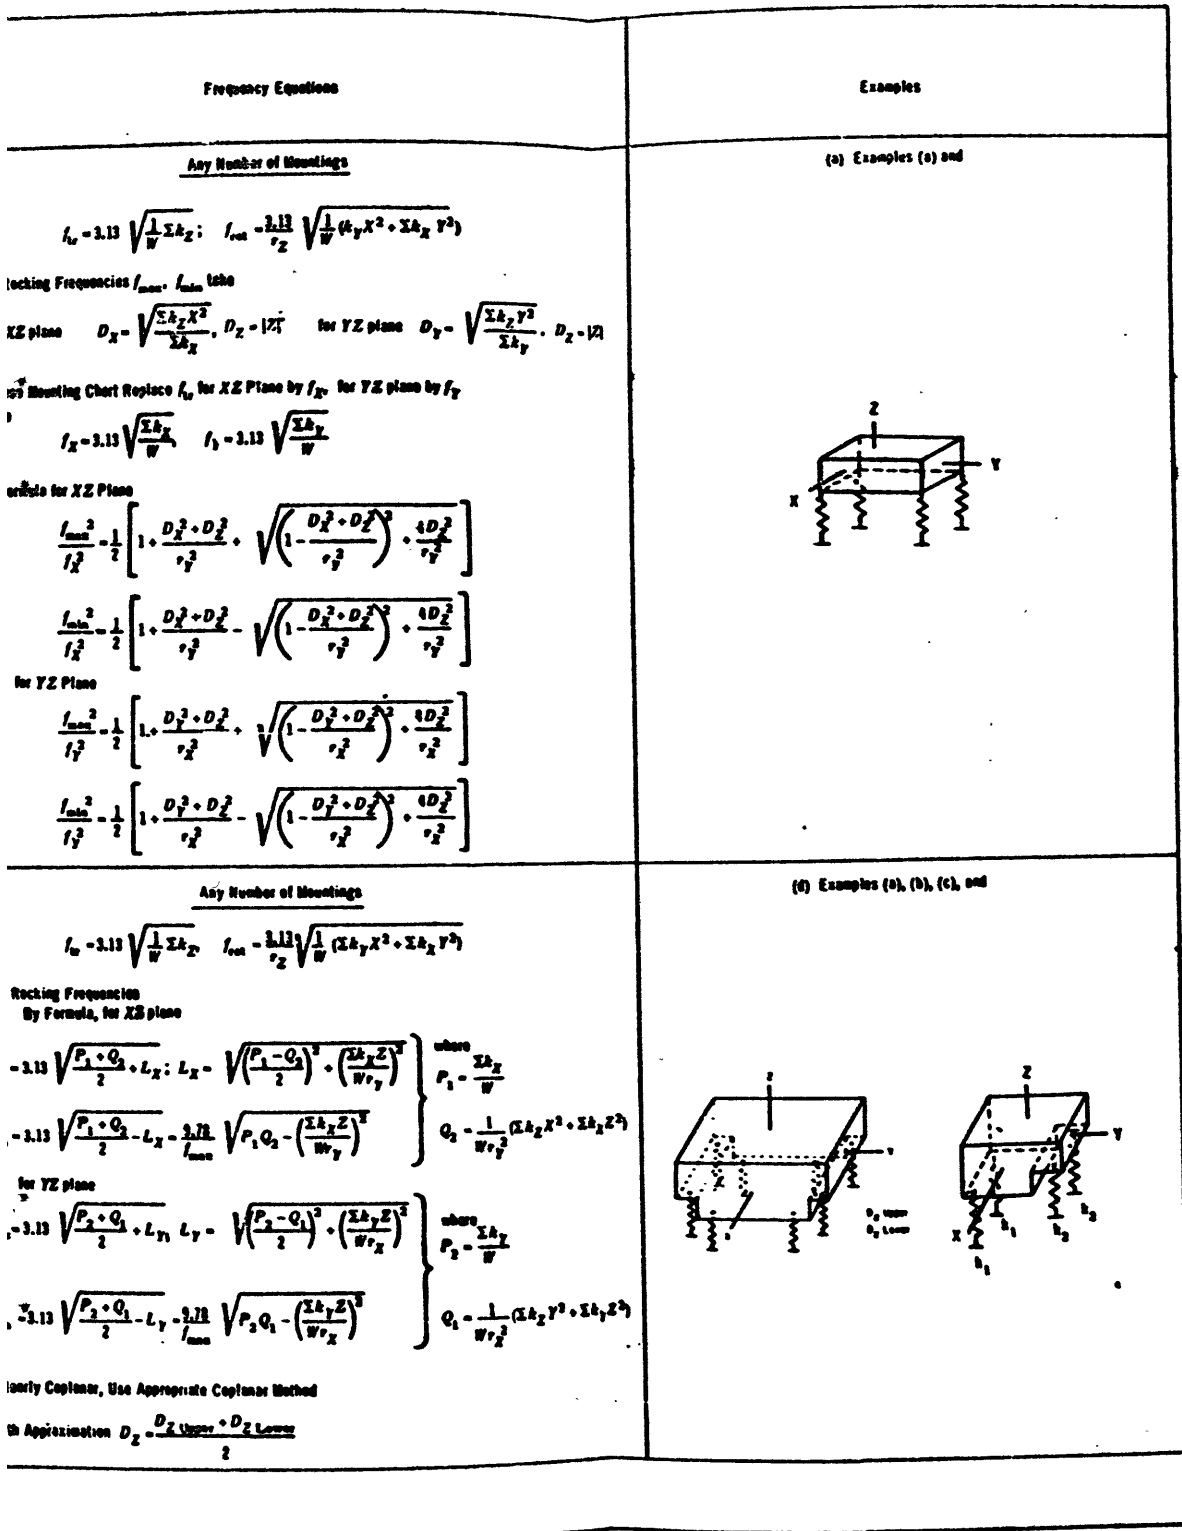 Frequency Equations
Examples
Any Number of Mountings
(a) Examples (a) and
f_tr = 3.13 √(1/W Σk_Z); f_rot = 3.13/r_Z √(1/W (k_Y X² + Σk_X Y²))
Rocking Frequencies f_max, f_min take
XZ plane D_X = √(Σk_Z X²/Σk_X), D_Z = |Z| for YZ plane D_Y = √(Σk_Z Y²/Σk_Y), D_Z = |Z|
Mounting Chart Replace f_tr for XZ Plane by f_X, for YZ plane by f_Y
f_X = 3.13 √(Σk_X/W), f_Y = 3.13 √(Σk_Y/W)
Formula for XZ Plane
f_max²/f_X² = 1/2 [1 + (D_X² + D_Z²)/r_Y² + √((1 - (D_X² + D_Z²)/r_Y²)² + 4D_Z²/r_Y²)]
f_min²/f_X² = 1/2 [1 + (D_X² + D_Z²)/r_Y² - √((1 - (D_X² + D_Z²)/r_Y²)² + 4D_Z²/r_Y²)]
for YZ Plane
f_max²/f_Y² = 1/2 [1 + (D_Y² + D_Z²)/r_X² + √((1 - (D_Y² + D_Z²)/r_X²)² + 4D_Z²/r_X²)]
f_min²/f_Y² = 1/2 [1 + (D_Y² + D_Z²)/r_X² - √((1 - (D_Y² + D_Z²)/r_X²)² + 4D_Z²/r_X²)]
Z
Y
X
Any Number of Mountings
(d) Examples (a), (b), (c), and
f_tr = 3.13 √(1/W Σk_Z), f_rot = 3.13/r_Z √(1/W (Σk_Y X² + Σk_X Y²))
Rocking Frequencies
By Formula, for XZ plane
= 3.13 √((P_1 + Q_2)/2 + L_X); L_X = √(((P_1 - Q_2)/2)² + (Σk_X Z/Wr_Y)²)
where
P_1 = Σk_X/W
= 3.13 √((P_1 + Q_2)/2 - L_X) = 9.78/f_max √(P_1 Q_2 - (Σk_X Z/Wr_Y)²)
Q_2 = 1/Wr_Y² (Σk_Z X² + Σk_X Z²)
for YZ plane
= 3.13 √((P_2 + Q_1)/2 + L_Y), L_Y = √(((P_2 - Q_1)/2)² + (Σk_Y Z/Wr_X)²)
where
P_2 = Σk_Y/W
= 3.13 √((P_2 + Q_1)/2 - L_Y) = 9.78/f_max √(P_2 Q_1 - (Σk_Y Z/Wr_X)²)
Q_1 = 1/Wr_X² (Σk_Z Y² + Σk_Y Z²)
Nearly Coplanar, Use Appropriate Coplanar Method
Approximation D_Z = (D_Z Upper + D_Z Lower)/2
z
Upper
Lower
Z
Y
X
k_1
k_1
k_2
k_2